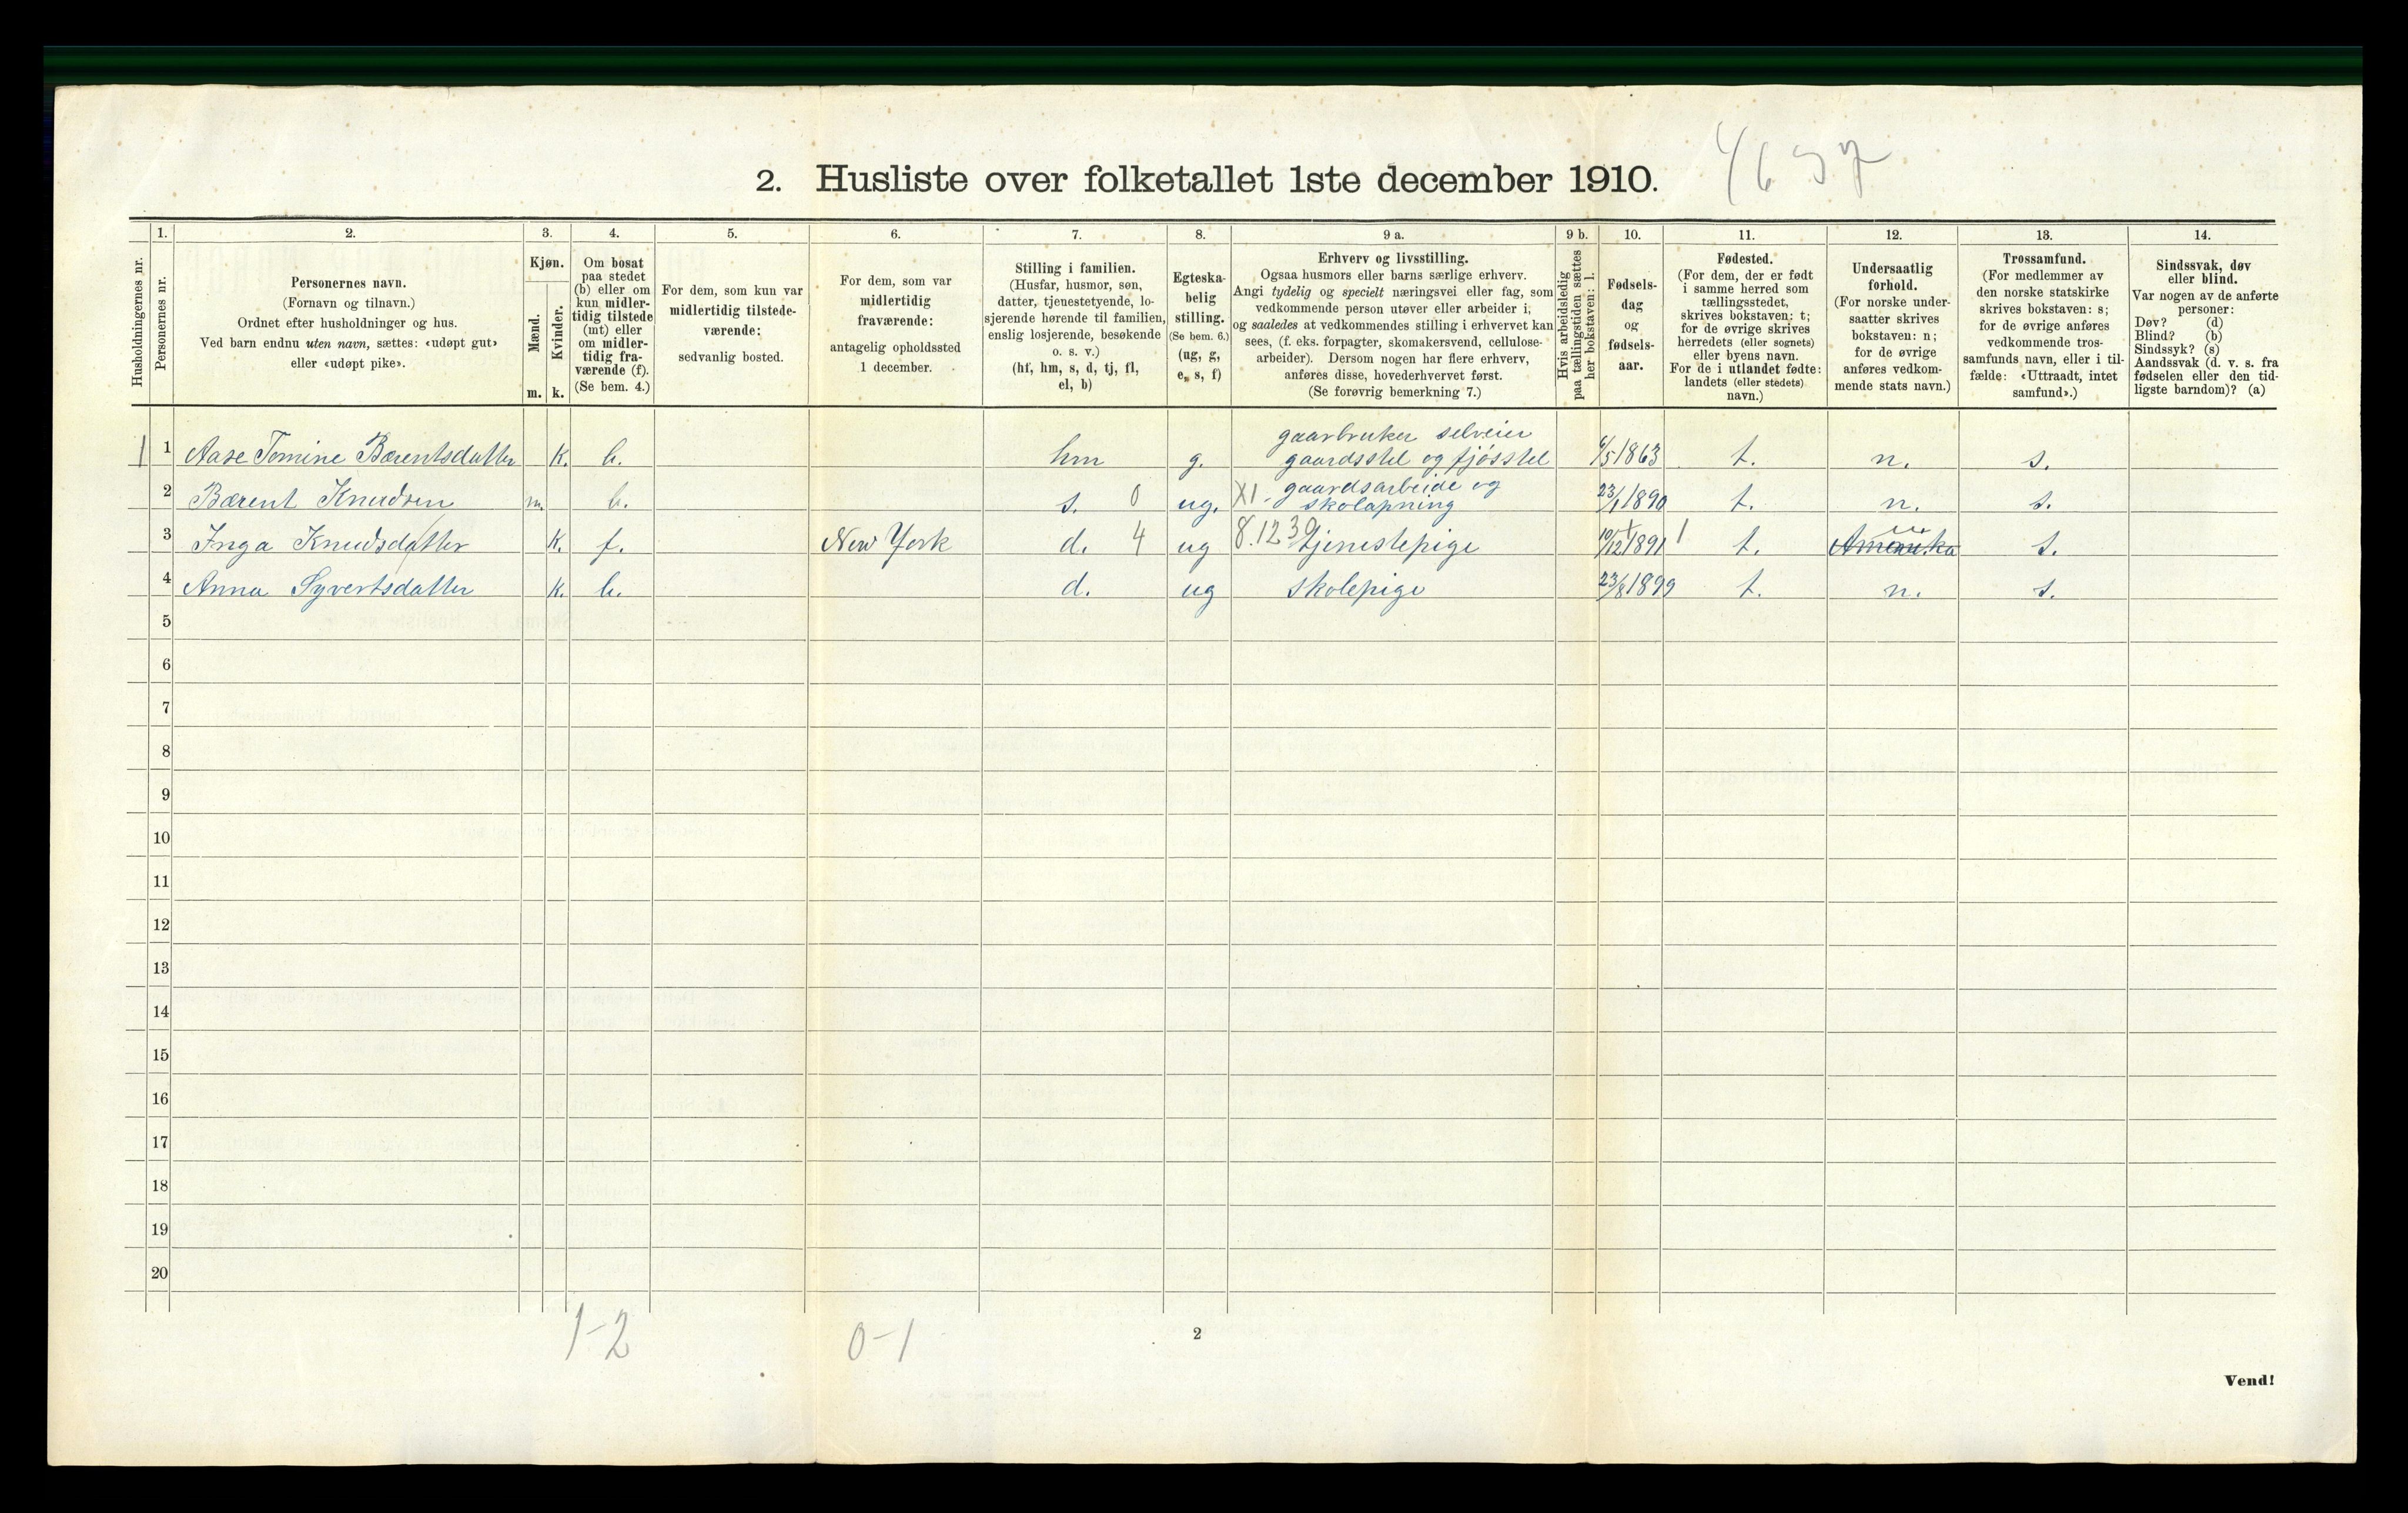 2. Husliste over folketallet 1ste december 1910.
Husholdningernes nr.
1.
Personernes nr.
2.
Personernes navn.
(Fornavn og tilnavn.)
Ordnet efter husholdninger og hus.
Ved barn endnu uten navn, sættes: «udøpt gut»
eller «udøpt pike».
3.
Kjøn.
Mænd.
Kvinder.
m. k.
4.
Om bosat
paa stedet
(b) eller om
kun midler-
tidig tilstede
(mt) eller
om midler-
tidig fra-
værende (f).
(Se bem. 4.)
5.
For dem, som kun var
midlertidig tilstede-
værende:
sedvanlig bosted.
6.
For dem, som var
midlertidig
fraværende:
antagelig opholdssted
1 december.
7.
Stilling i familien.
(Husfar, husmor, søn,
datter, tjenestetyende, lo-
sjerende hørende til familien,
enslig losjerende, besøkende
o. s. v.)
(hf, hm, s, d, tj, fl,
el, b)
8.
Egteska-
belig
stilling.
(Se bem. 6.)
(ug, g,
e, s, f)
9 a.
Erhverv og livsstilling.
Ogsaa husmors eller barns særlige erhverv.
Angi tydelig og specielt næringsvei eller fag, som
vedkommende person utøver eller arbeider i,
og saaledes at vedkommendes stilling i erhvervet kan
sees, (f. eks. forpagter, skomakersvend, cellulose-
arbeider). Dersom nogen har flere erhverv,
anføres disse, hovederhvervet først.
(Se forøvrig bemerkning 7.)
9 b.
Hvis arbeidsledig
paa tællingstiden sættes
her bokstaven: l.
10.
Fødsels-
dag
og
fødsels-
aar.
11.
Fødested.
(For dem, der er født
i samme herred som
tællingsstedet,
skrives bokstaven: t;
for de øvrige skrives
herredets (eller sognets)
eller byens navn.
For de i utlandet fødte:
landets (eller stedets)
navn.)
12.
Undersaatlig
forhold.
(For norske under-
saatter skrives
bokstaven: n;
for de øvrige
anføres vedkom-
mende stats navn.)
13.
Trossamfund.
(For medlemmer av
den norske statskirke
skrives bokstaven: s;
for de øvrige anføres
vedkommende tros-
samfunds navn, eller i til-
fælde: «Uttraadt, intet
samfund».)
14.
Sindssvak, døv
eller blind.
Var nogen av de anførte
personer:
Døv? (d)
Blind? (b)
Sindssyk? (s)
Aandssvak (d. v. s. fra
fødselen eller den tid-
ligste barndom)? (a)
gaarbruker selveier
1 1 Aase Tomine Bærentsdatter K. b. hm g. gaardsstel og fjøsstel 6/5 1863 t. n. s.
gaardsarbeide og
2 Bærent Knudsen m. b. s. 0 ug. X1. skolapning 23/1 1890 t. n. s.
3 Inga Knudsdatter K. f. New York d. 4 ug 8.1239 tjenestepige 10/12 1891 1 t. Amerika n. s.
4 Anna Syvertsdatter K. b. d. ug skolepige 23/8 1899 t. n. s.
5
6
7
8
9
10
11
12
13
14
15
16
17
18
19
20
1-2 0-1
2
Vend!